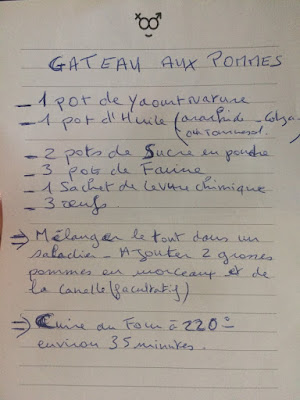 GATEAU AUX POMMES
- 1 pot de yaourt Nature
- 1 pot d'Huile (arachide - Colza
ou Tournesol.
- 2 pots de Sucre en poudre
- 3 pots de Farine
- 1 Sachet de levure chimique
- 3 œufs.
=> Mélanger le tout dans un
saladier - Ajouter 2 grosses
pommes en morceaux et de
la canelle (facultatif)
=> Cuire au Four à 220°
environ 35 minutes.